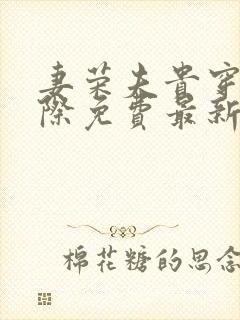 妻荣夫贵穿
际免费最新
棉花糖的思念